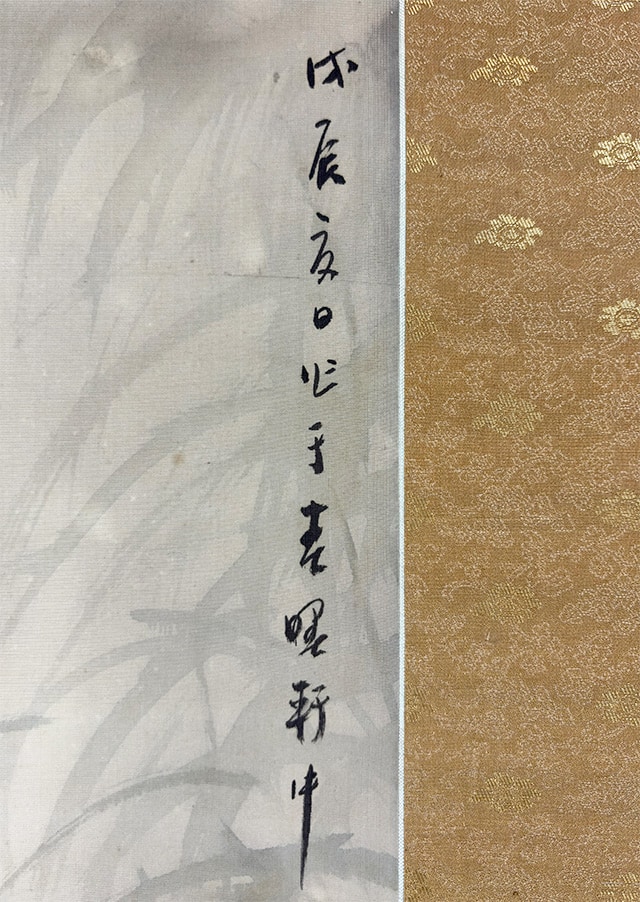 戊辰夏日作于春曙軒中